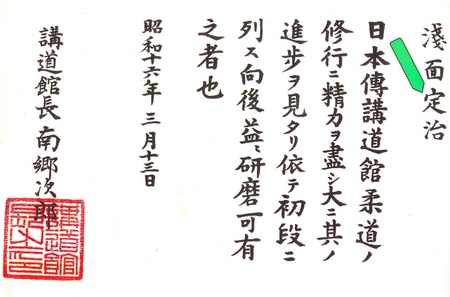 淺面定治
日本傳講道館柔道ノ
修行ニ精力ヲ盡シ大ニ其ノ
進歩ヲ見タリ依テ初段ニ
列ス向後益〻研磨可有
之者也
昭和十六年三月十三日
講道館長南郷次郎